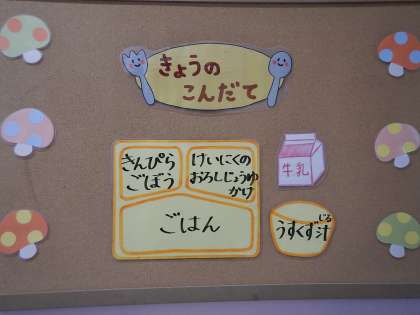 きょうの
こんだて
きんぴら
ごぼう
けいにくの
おろしじょうゆ
かけ
ごはん
牛乳
じる
うすくず汁